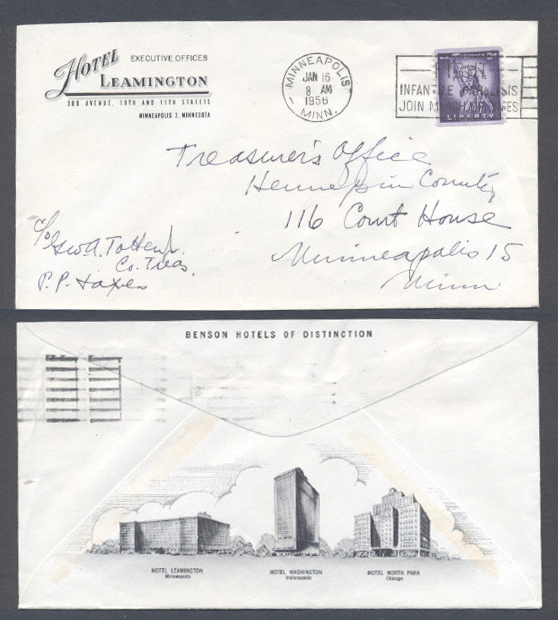 Hotel EXECUTIVE OFFICES
LEAMINGTON
3RD AVENUE, 10TH AND 11TH STREETS
MINNEAPOLIS 2, MINNESOTA
MINNEAPOLIS
JAN 16
8 AM
1956
MINN.
INFANTILE PARALYSIS
JOIN MARCH OF DIMES
LIBERTY
Treasurer's Office
Hennepin County
116 Court House
Minneapolis 15
Minn
c/o
Co. Treas.
P.P. taxes
BENSON HOTELS OF DISTINCTION
HOTEL LEAMINGTON
Minneapolis
HOTEL WASHINGTON
Indianapolis
HOTEL NORTH PARK
Chicago